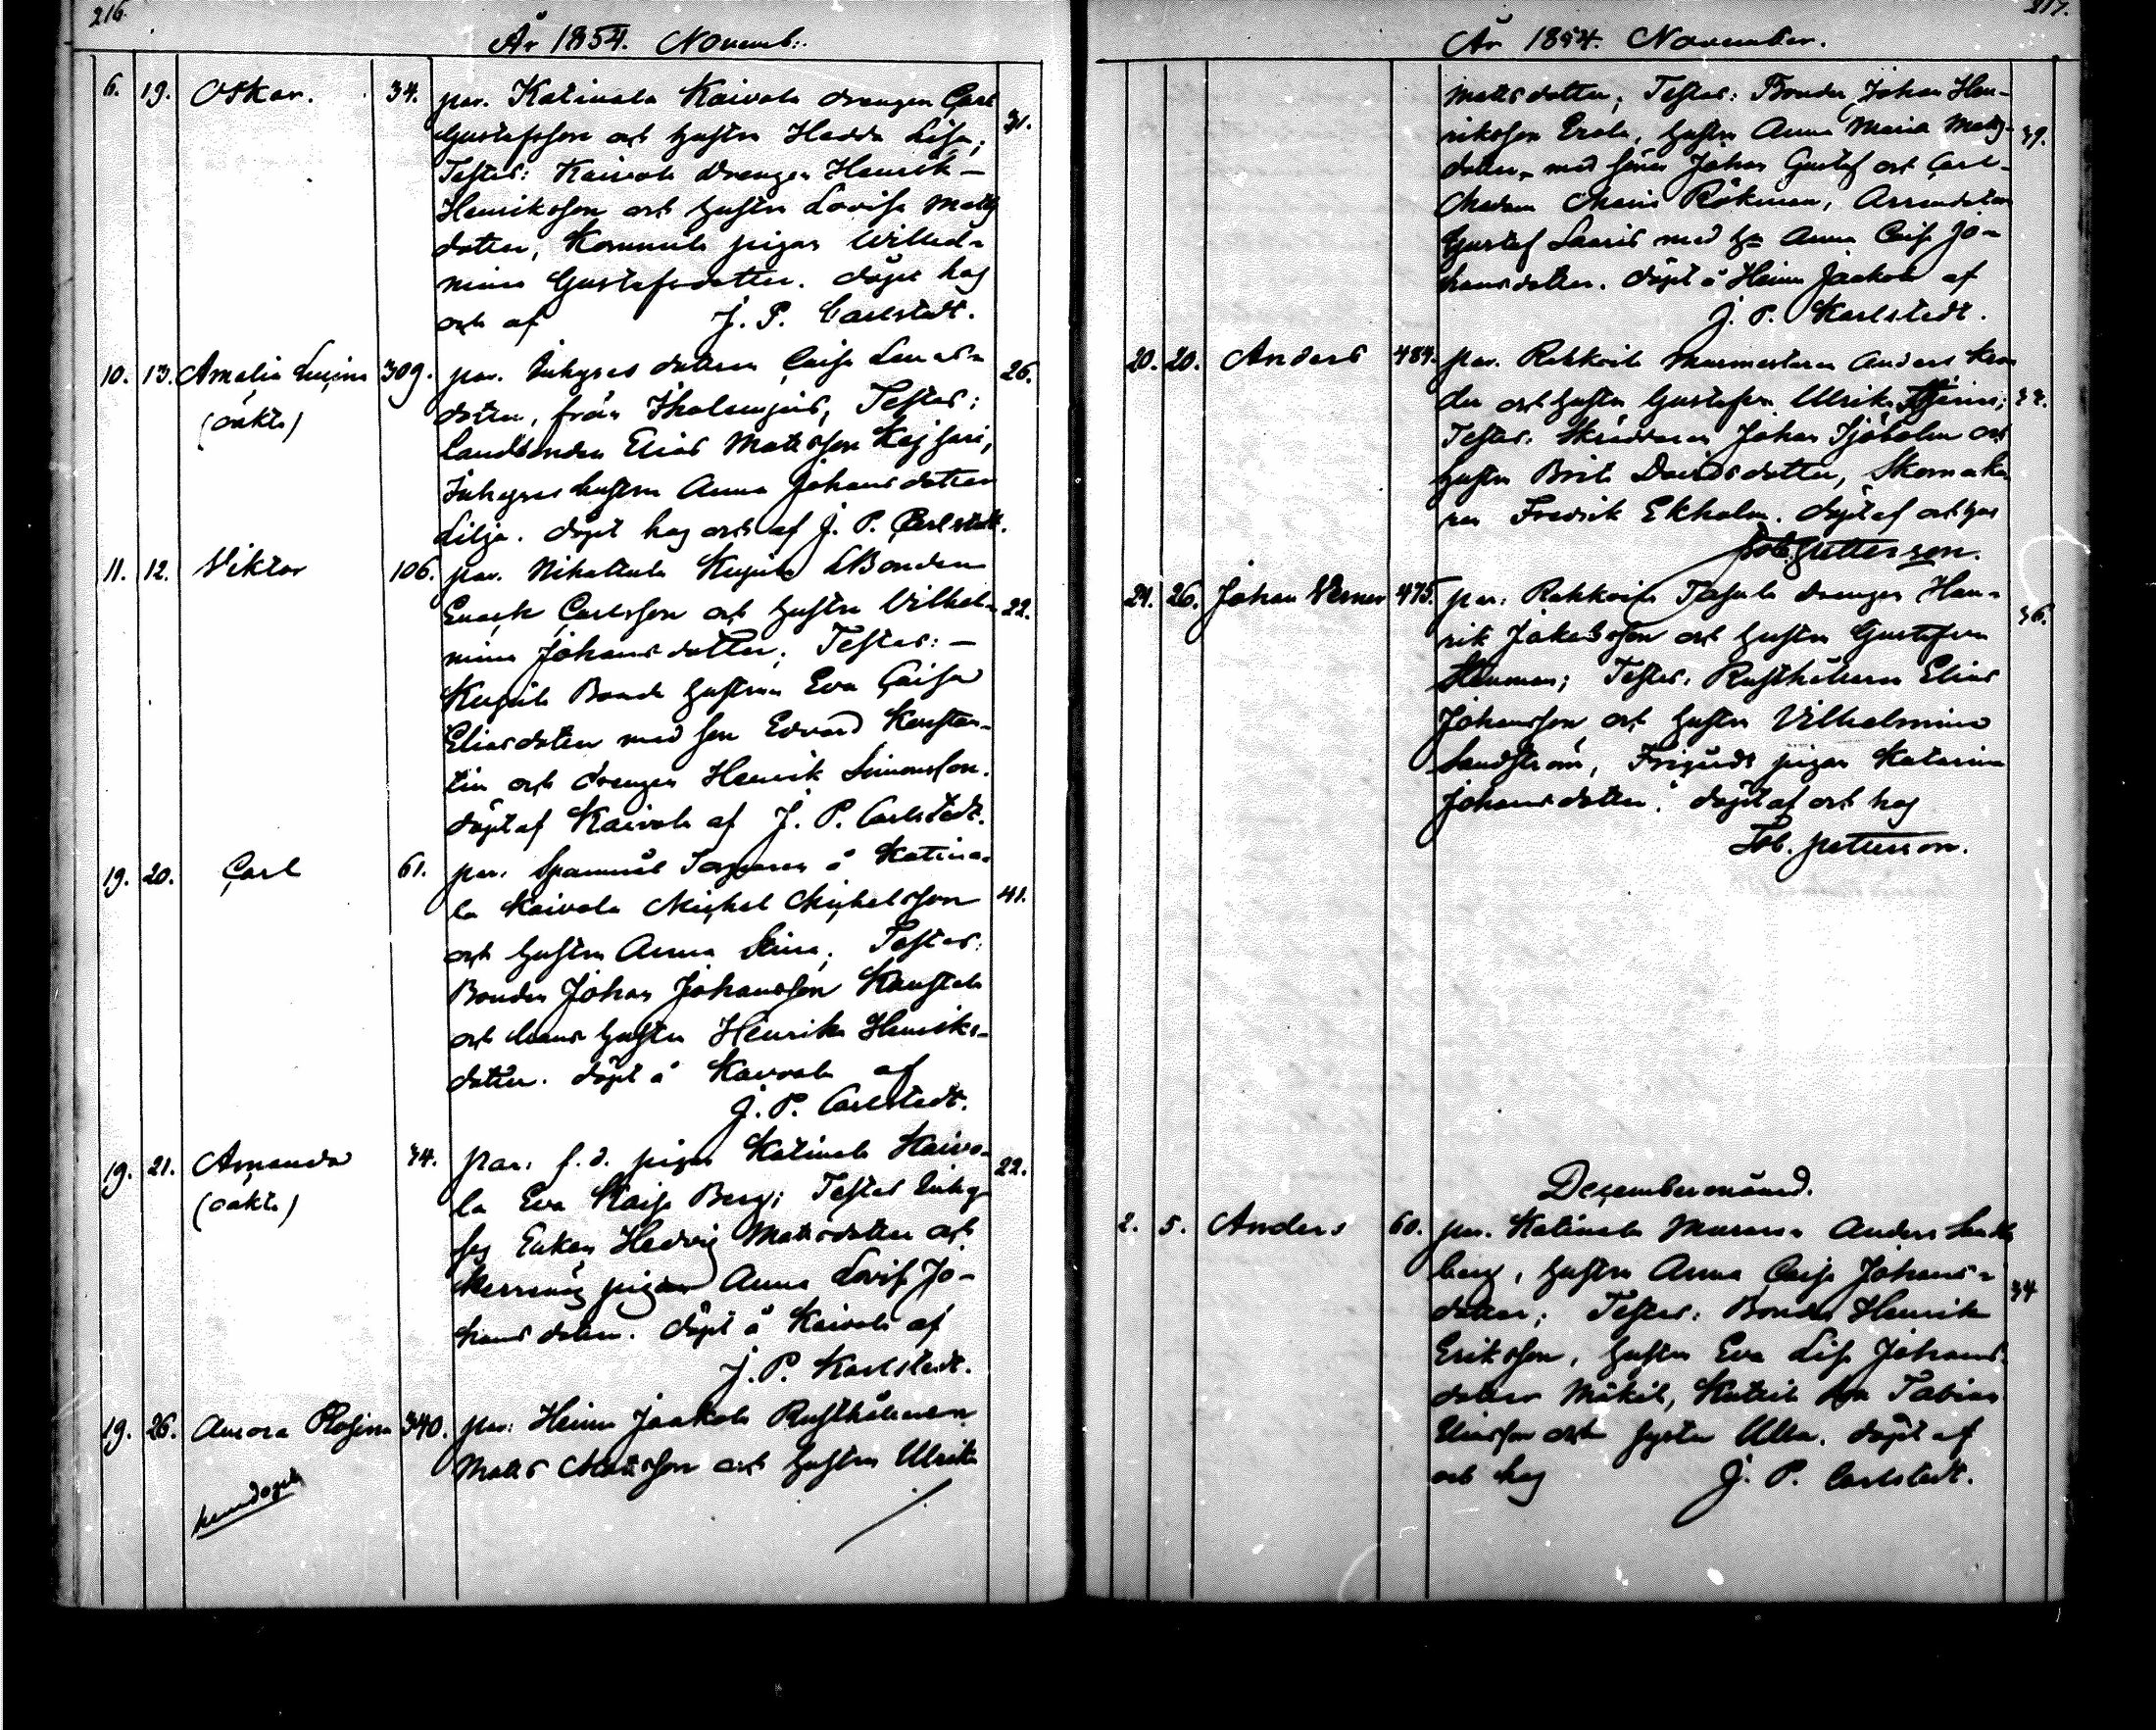 216.
År 1854. Novemb:.
6. 19. Oskar. 34. par. Katinala Kaivola drengen Carl
Gustafsson och hustru Hedda Lisa; 31.
Testes: Kaivola drengen Henrik
Henriksson och hustru Lovisa Matts
dotter, pigan Wilhel-
mina Gustafsdotter. döpt hos
och af J. P. Carlstedt.
10. 13. Amalia Lucina 309. par. Inhyses dottern Caisa Lenas- 26.
(oäkta) dotter, från Testes:
Landbonden Elias Mattsson
Inhyses hustrun Anna Johansdotter
Lilja. döpt hos och af J. P. Carlstedt.
11. 12. Viktor 106. par. Nihattula LBonden
Enock Carlsson och hustru Vilhel- 22.
mina Johansdotter; Testes: —
Bonde hustrun Eva Caisa
Eliasdotter med son Edvard Konstan-
tin och drengen Henrik Simonsson.
döpt af Kaivola af J. P. Carlstedt.
19. 20. Carl 61. par. Torparen å Katina-
la Kaivola Michel Michelsson 41.
och hustru Anna Stina; Testes:
Bonden Johan Johansson
och hans hustru Henrika Henriks-
dotter. döpt å Kaivola af
J. P. Carlstedt.
19. 21. Amanda 34. par. f. d. pigan Katinala Kaivo- 22.
(oäkta) la Eva Kaisa Berg; Testes Inhy-
ses Enkan Hedvig Mattsdotter och
pigan Anna Lovisa Jo-
hansdotter. döpt å Kaivola af
J. P. Karlstedt.
19. 26. Aurora Rosina 340. par: Heinu Jaakola Rusthållaren
Matts Mattsson och hustru Ulrika
nöddöpt
./.
217.
År 1854. November.
Mattsdotter; Testes: Bonden Johan Hen-
riksson Erola, hustru Anna Maria Matts- 39.
dotter, med söner Johan Gustaf och Carl
Madam Maria Rökman, Arrendatorn
Gustaf Laaris med h:u Anna Caisa Jo-
hansdotter. döpt å Heinu Jaakola af
J. P. Karlstedt.
20. 20. Anders 484. par. Rekkoila Murmestaren Anders
der och hustru Gustafva Ulrika 32.
Testes. Skräddaren Johan Sjöholm och
hustru Brita Davidsdotter, Skomaka-
ren Fredrik Ekholm. döpt af och hos
Tob. Petterson.
24. 26. Johan Verner 475. par: Rekkoila drengen Hen-
rik Jakobsson och hustru Gustafva 36.
Testes. Rusthållaren Elias
Johansson och hustru Vilhelmina
Sandström, pigan Katarina
Johansdotter. döpt af och hos
Tob. Petterson.
Decembermånad.
2. 5. Anders 60. par. Katinala Muraren Anders Sand-
berg, hustru Anna Caisa Johans-
dotter; Testes: Bonden Henrik 34
Eriksson, hustru Eva Lisa Johans-
dotter Mäkilä, Tobias
Eliasson och syster Ulla. döpt af
och hos J. P. Carlstedt.